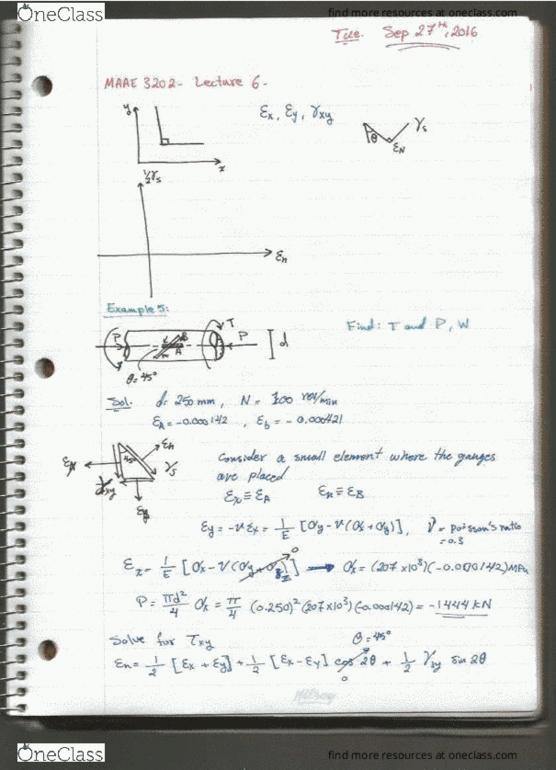 OneClass
find more resources at oneclass.com
Tue. Sep 27th, 2016
MAAE 3202- Lecture 6-
y
x
εx, εy, γxy
θ
εN
γs
½γs
εn
Example 5:
Find: T and P, W
P
T
P
d
A
B
θ=45°
Sol. d = 250 mm, N = 100 rev/min
εA = -0.000142, εb = -0.000421
εx
εn
γs
45°
εy
Consider a small element where the gauges
are placed
εx ≡ εA εn ≡ εB
εy = -ν εx = 1/E [σy - ν(σx + σz)], ν = poisson's ratio
= 0.3
εx = 1/E [σx - ν(σy + σz)] 0 → σx = (207 x 10³)(-0.000142) MPa
P = πd²/4 σx = π/4 (0.250)² (207x10³)(-0.000142) = -1444 kN
Solve for τxy
θ = 45°
εn = 1/2 [εx + εy] + 1/2 [εx - εy] cos 2θ + 1/2 γxy sin 2θ
0
OneClass
find more resources at oneclass.com